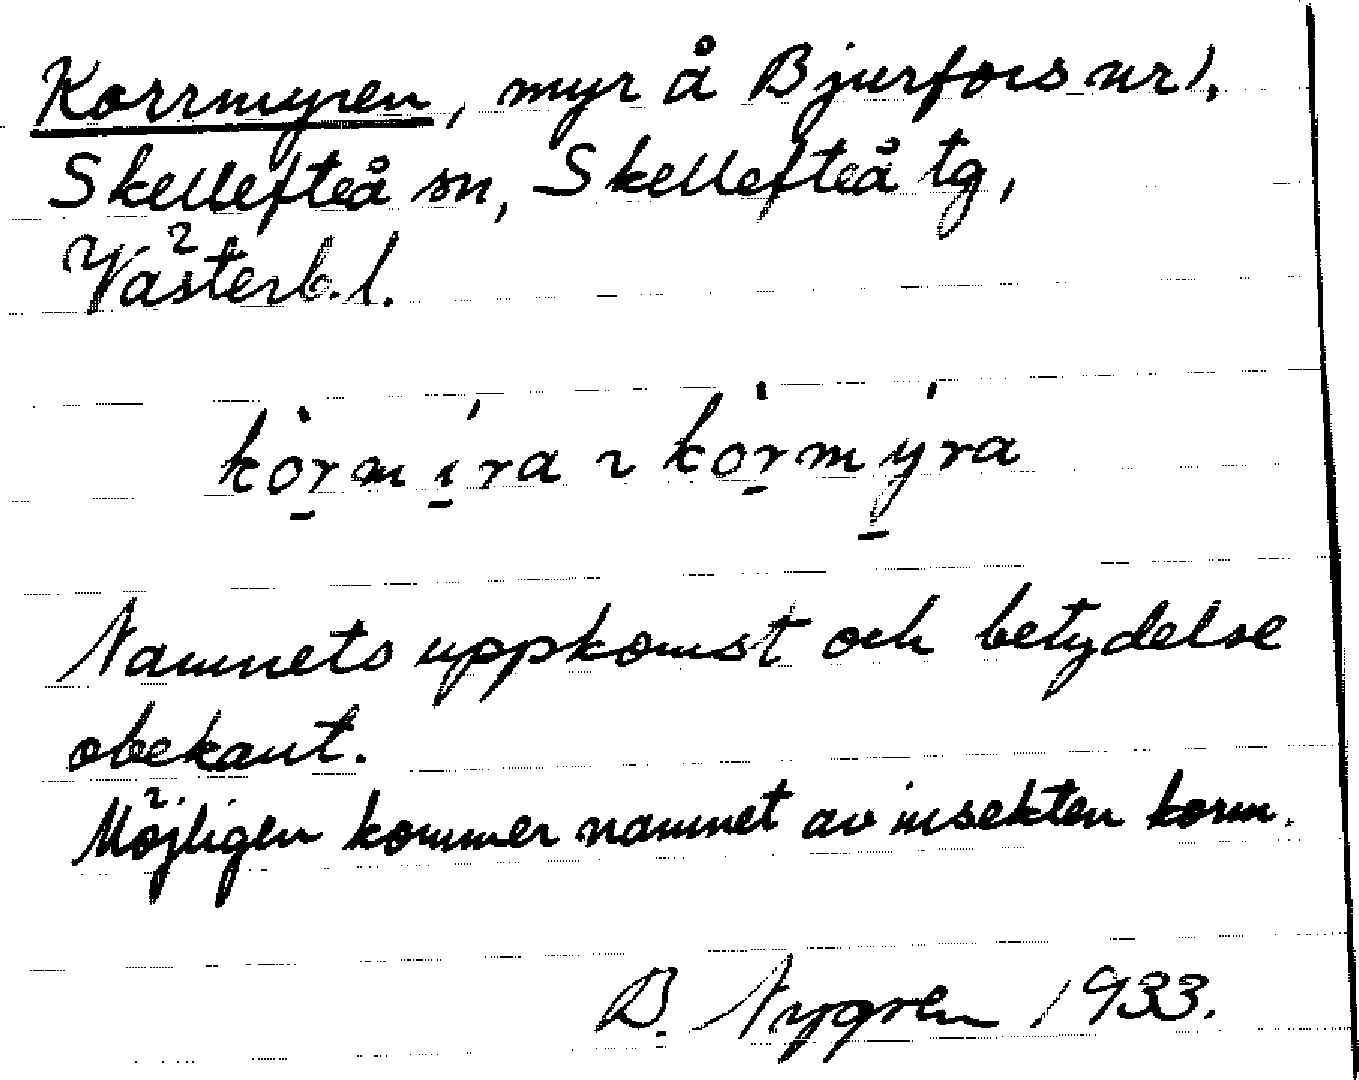 Korrmyren, myr å Bjurfors nr 1,
Skellefteå sn, Skellefteå tg,
Västerb. l.
kòr̠mí̠ra ~ kòr̠mý̠ra
Namnets uppkomst och betydelse
obekant.
Möjligen kommer namnet av insekten korm.
B. Nygren 1933.